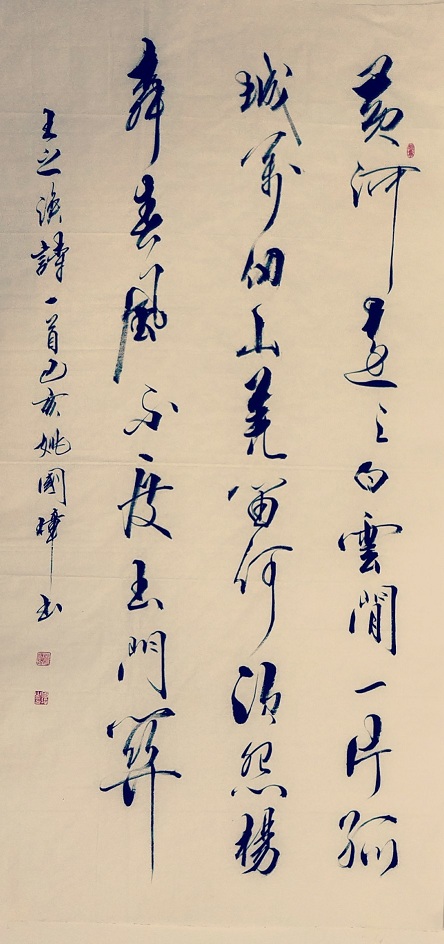 黄河遠上白雲間一片孤
城萬仞山羌笛何須怨楊
柳春風不度玉門關
王之渙詩一首己亥姚國書